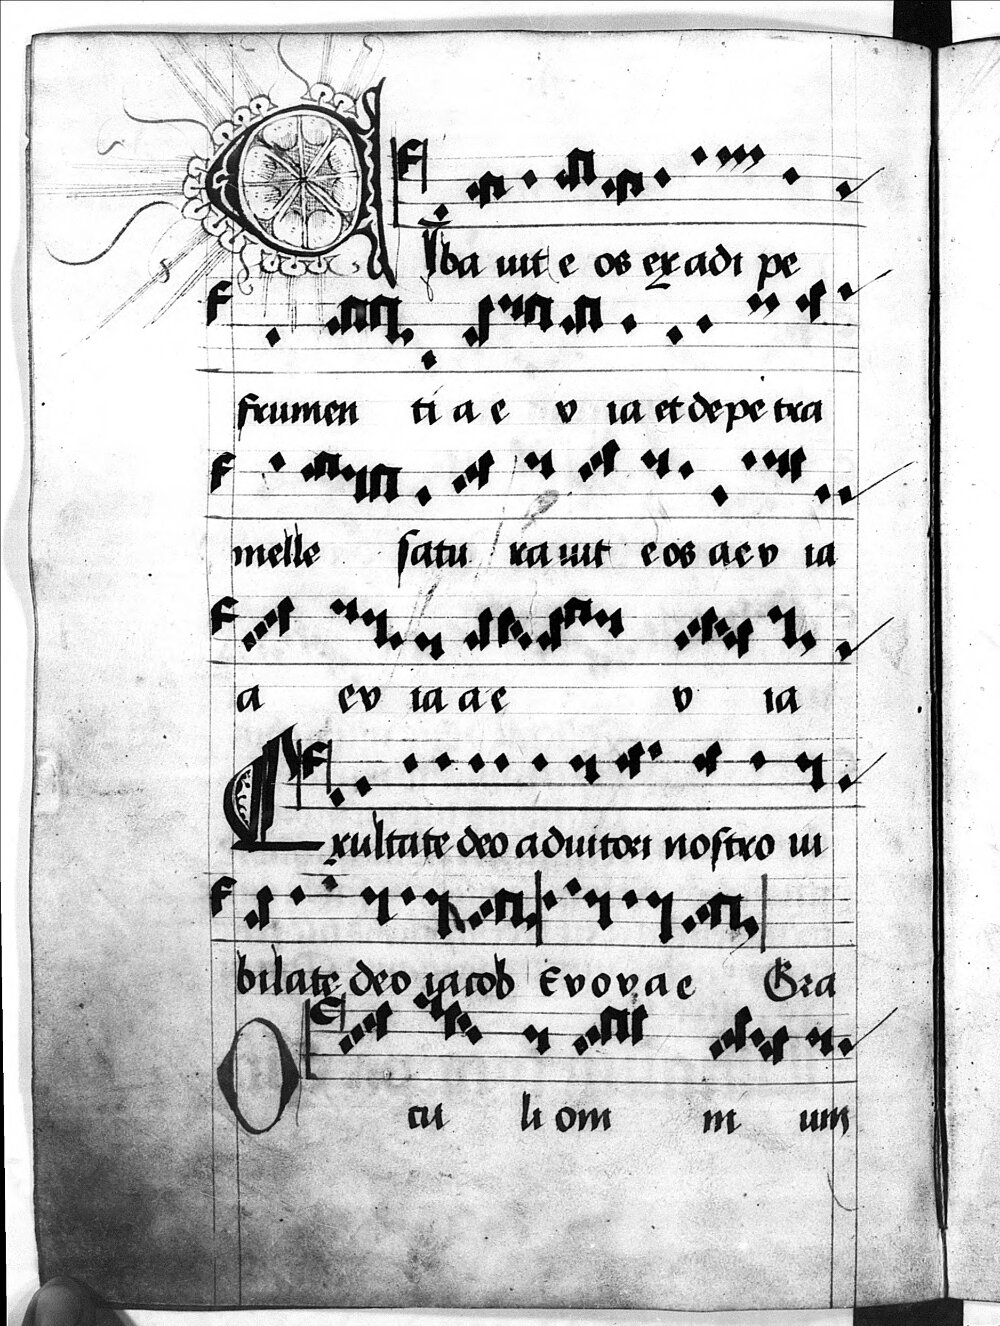 Ciba uit e os ex adi pe
frumen ti a e v ia et de pe tra
melle satu ra uit e os a e v ia
a ev ia a e v ia
Exultate deo adiutori nostro iu
bilate deo iacob Evovae Gra
Ocu li om ni um